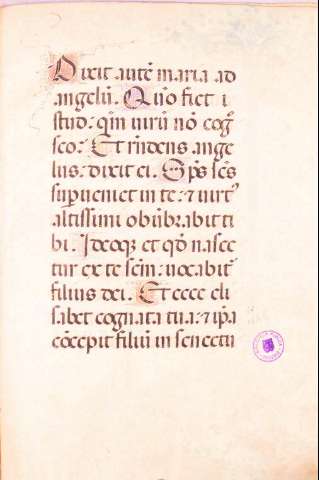 Dixit autē maria ad
angelū. Quō fiet i
stud: qm̄ uirū nō coḡ
sco: Et r̄ndens ange
lus: dixit ei. Sp̄s scs̄
suꝑueniet in te: ⁊ uirt᷒
altissimi obūbrabit ti
bi. Ideoqꝫ et qd̄ nasce
tur ex te scm̄: uocabit᷒
filius dei. Et ecce eli
sabet cognata tua: ⁊ ip̄a
cōcepit filiū in senectu